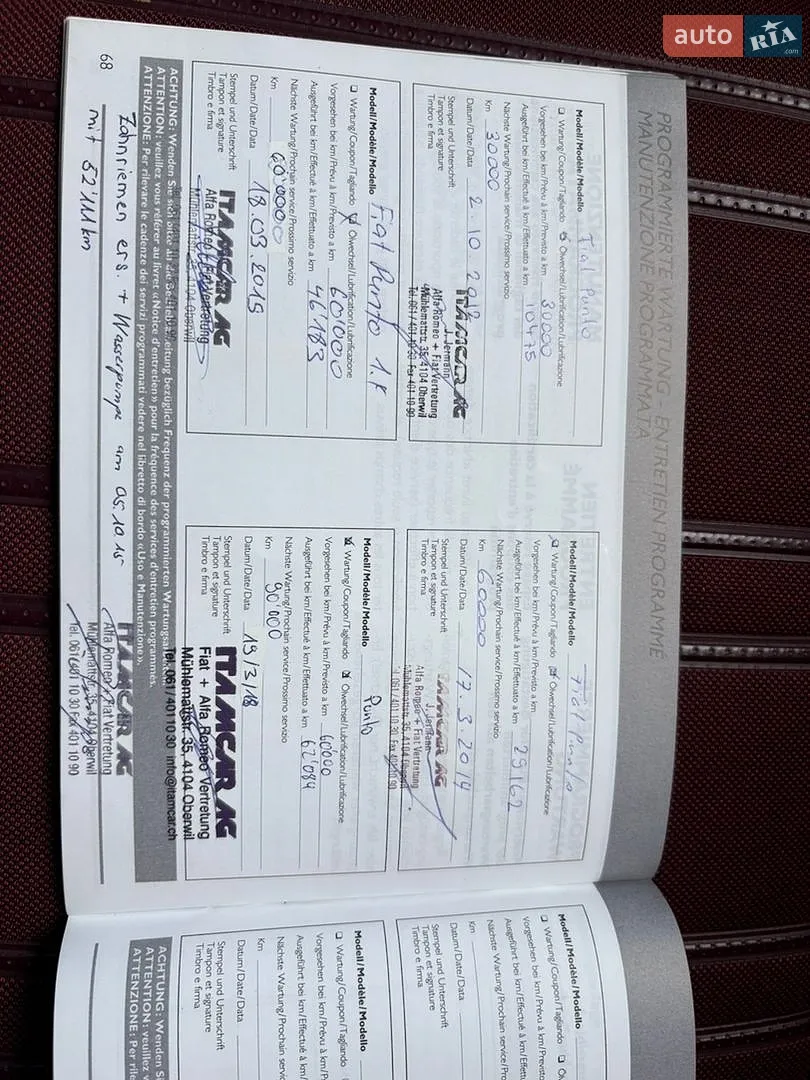 auto RIA.com
PROGRAMMIERTE WARTUNG - ENTRETIEN PROGRAMMÉ
MANUTENZIONE PROGRAMMATA
Modell/Modèle/Modello Fiat Punto
Wartung/Coupon/Tagliando Ölwechsel/Lubrification/Lubrificazione
Vorgesehen bei km/Prévu à km/Previsto a km 30000
Ausgeführt bei km/Effectué à km/Effettuato a km 10475
Nächste Wartung/Prochain service/Prossimo servizio
Km 30000
Datum/Date/Data 2.10.2012
Stempel und Unterschrift
Tampon et signature
Timbro e firma
ITAMCAR AG
J. Jermann
Alfa Romeo + Fiat Vertretung
Mühlemattstr. 35, 4104 Oberwil
Tel. 061 / 401 10 30 Fax 401 10 90
Modell/Modèle/Modello Fiat Punto
Wartung/Coupon/Tagliando Ölwechsel/Lubrification/Lubrificazione
Vorgesehen bei km/Prévu à km/Previsto a km
Ausgeführt bei km/Effectué à km/Effettuato a km 29162
Nächste Wartung/Prochain service/Prossimo servizio
Km 60000
Datum/Date/Data 17.3.2014
Stempel und Unterschrift
Tampon et signature
Timbro e firma
ITAMCAR AG
J. Jermann
Alfa Romeo + Fiat Vertretung
Mühlemattstr. 35, 4104 Oberwil
Tel. 061 / 401 10 30 Fax 401 10 90
Modell/Modèle/Modello Fiat Punto 1.4
Wartung/Coupon/Tagliando Ölwechsel/Lubrification/Lubrificazione
Vorgesehen bei km/Prévu à km/Previsto a km 60'000
Ausgeführt bei km/Effectué à km/Effettuato a km 46'183
Nächste Wartung/Prochain service/Prossimo servizio
Km 60'000
Datum/Date/Data 18.03.2015
Stempel und Unterschrift
Tampon et signature
Timbro e firma
ITAMCAR AG
Alfa Romeo + Fiat Vertretung
Mühlemattstr. 35, 4104 Oberwil
Modell/Modèle/Modello Punto
Wartung/Coupon/Tagliando Ölwechsel/Lubrification/Lubrificazione
Vorgesehen bei km/Prévu à km/Previsto a km 60'000
Ausgeführt bei km/Effectué à km/Effettuato a km 62'084
Nächste Wartung/Prochain service/Prossimo servizio
Km 90'000
Datum/Date/Data 19/3/18
Stempel und Unterschrift
Tampon et signature
Timbro e firma
ITAMCAR AG
Fiat + Alfa Romeo Vertretung
Mühlemattstr. 35, 4104 Oberwil
Tel. 061 / 401 10 30 info@itamcar.ch
ACHTUNG: Wenden Sie sich bitte an die Betriebsanleitung bezüglich Frequenz der programmierten Wartungsarbeiten.
ATTENTION: veuillez vous référer au livret «Notice d'entretien» pour la fréquence des services d'entretien programmés.
ATTENZIONE: Per rilevare le cadenze dei servizi programmati vedere nel libretto di bordo «Uso e Manutenzione».
68
Zahnriemen ers. + Wasserpumpe am 05.10.15
mit 52'111 km
ITAMCAR AG
Alfa Romeo + Fiat Vertretung
Mühlemattstr. 35, 4104 Oberwil
Tel. 061 / 401 10 30 Fax 401 10 90
Modell/Modèle/Modello
Wartung/Coupon/Tagliando
Vorgesehen bei km/Prévu à km/Previsto
Ausgeführt bei km/Effectué à km/Effettuato
Nächste Wartung/Prochain service/Pro
Km
Datum/Date/Data
Stempel und Unterschrift
Tampon et signature
Timbro e firma
Modell/Modèle/Modello
Wartung/Coupon/Tagliando
Vorgesehen bei km/Prévu à km/Previsto a km
Ausgeführt bei km/Effectué à km/Effettuat
Nächste Wartung/Prochain service/Prossim
Km
Datum/Date/Data
Stempel und Unterschrift
Tampon et signature
Timbro e firma
ACHTUNG: Wenden S
ATTENTION: veuillez v
ATTENZIONE: Per rile